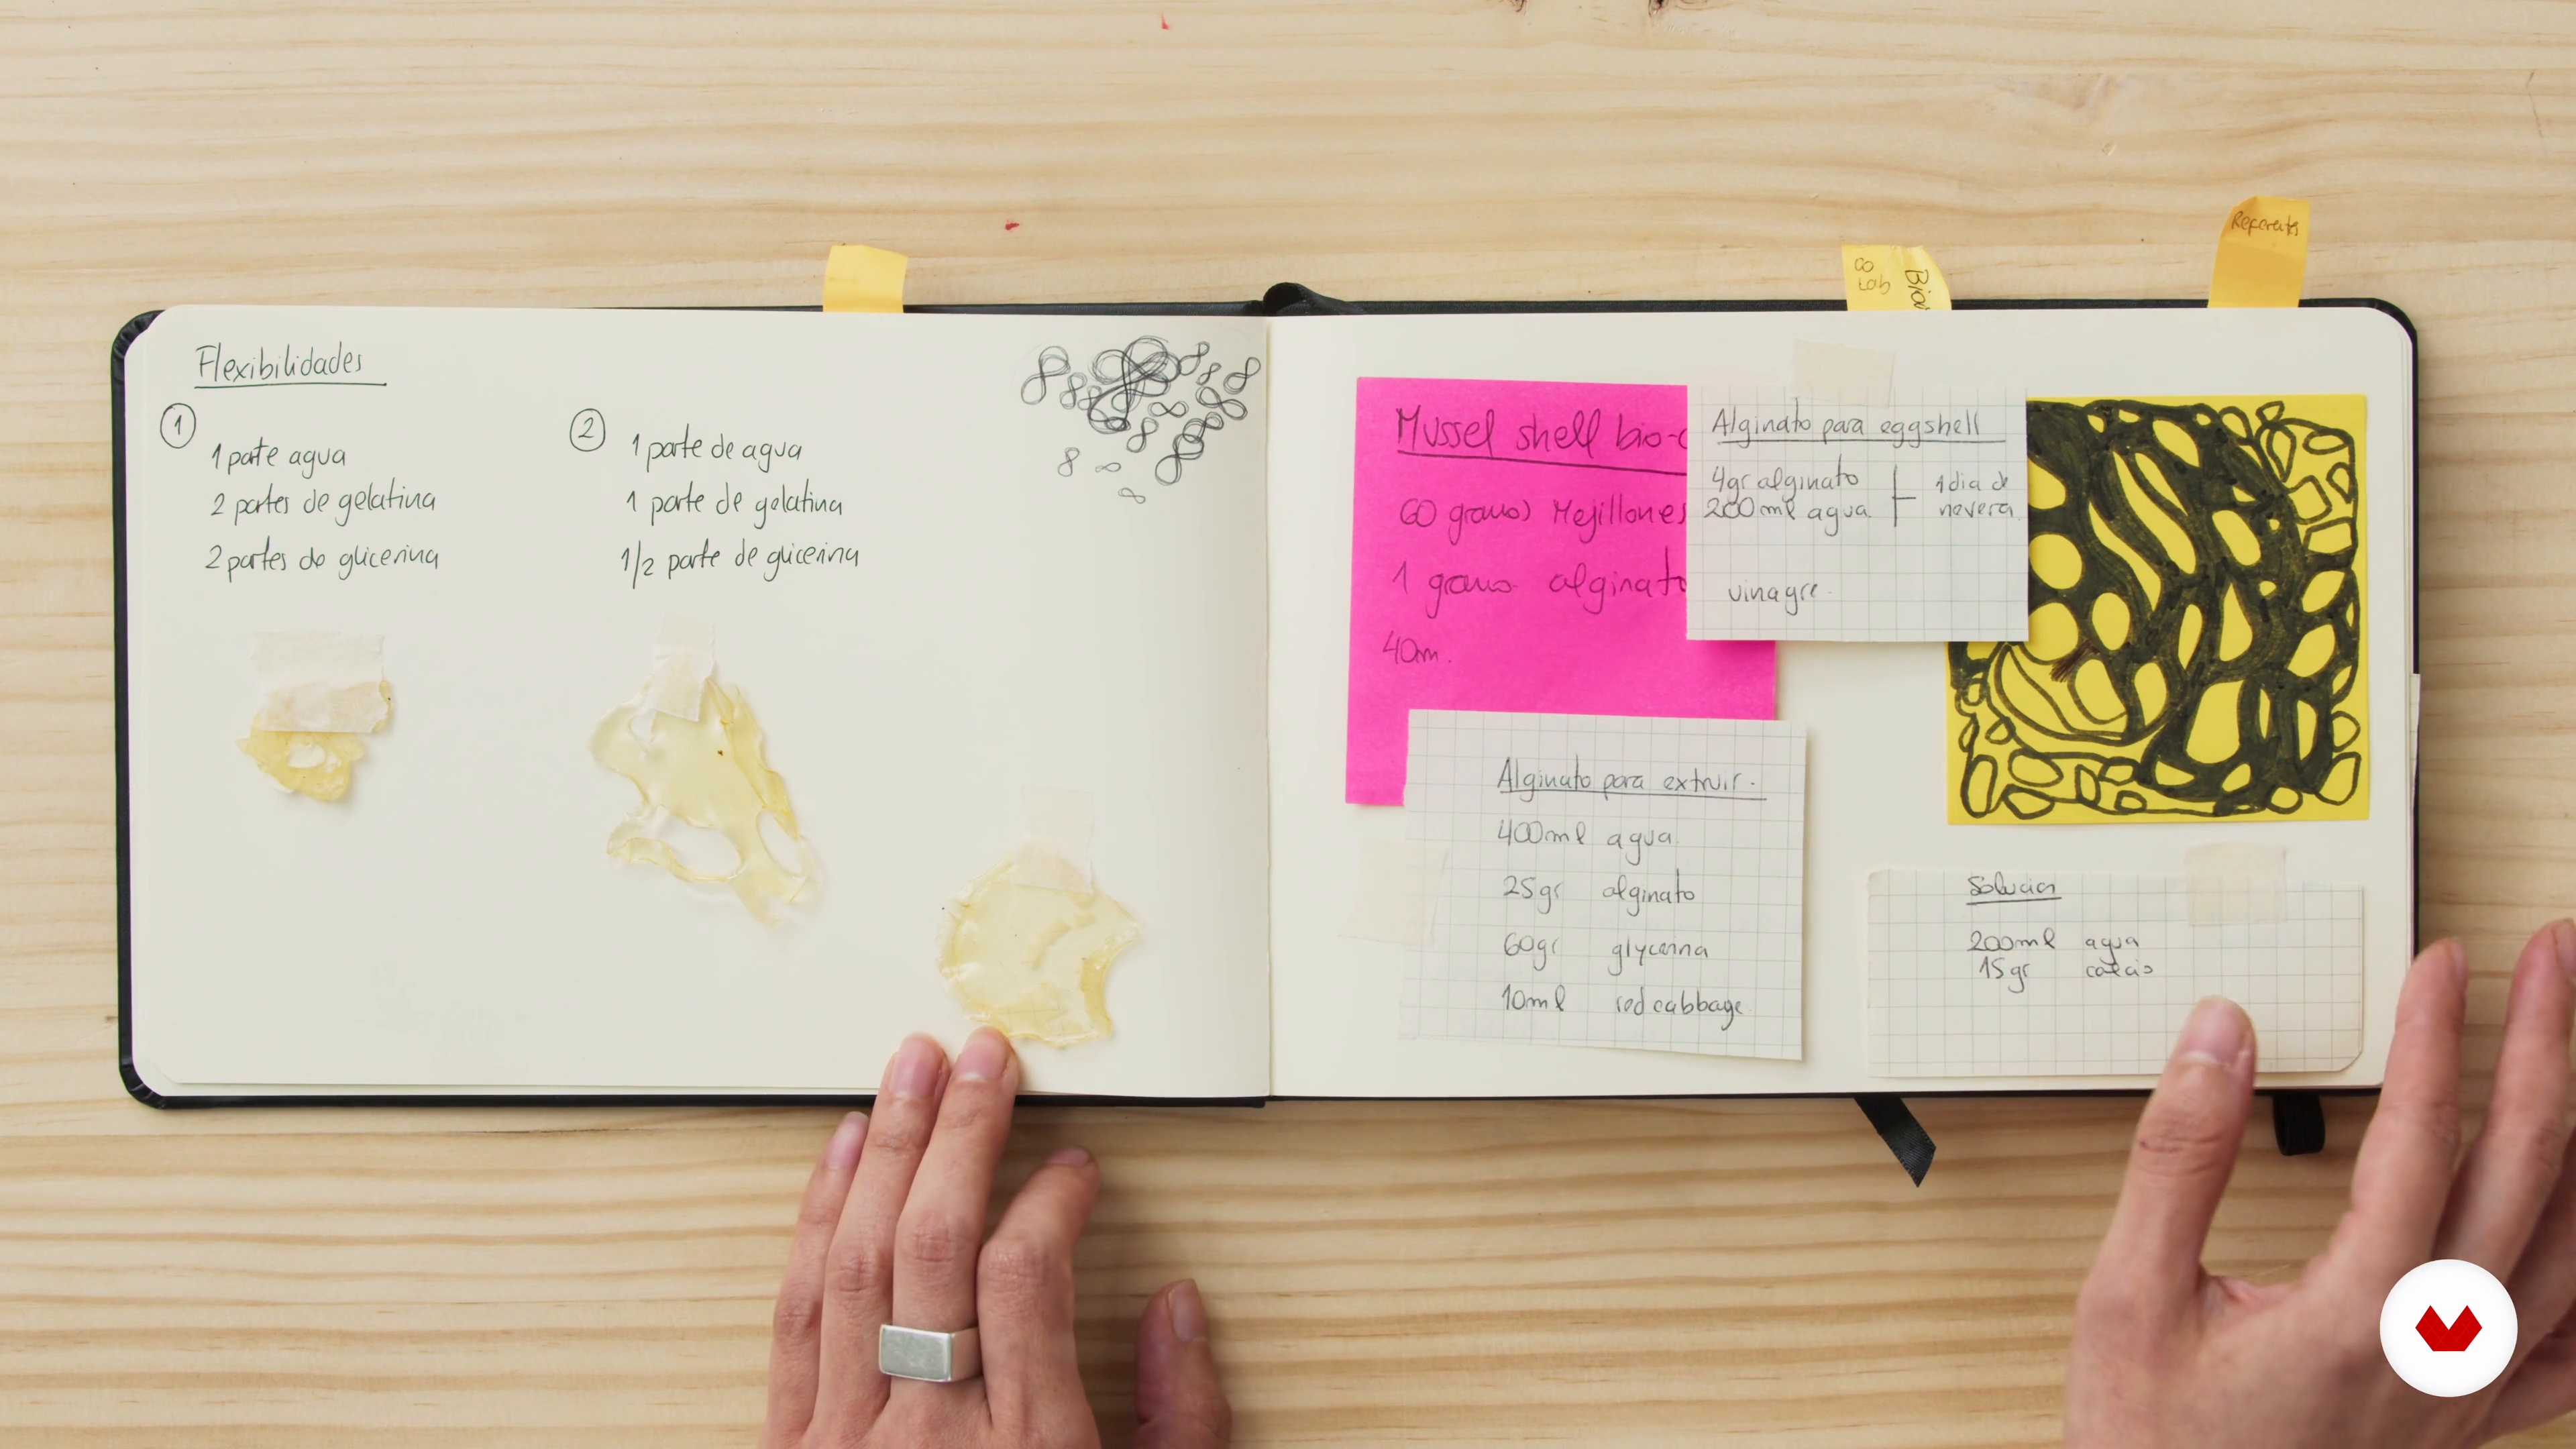 Referents
Flexibilidades
1
1 parte agua
2 partes de gelatina
2 partes de glicerina
2
1 parte de agua
1 parte de gelatina
1/2 parte de glicerina
Mussel shell bio-c
60 gramos Mejillones
1 gramo alginato
40m.
Alginato para eggshell
4gr alginato
200ml agua
1 dia de
nevera
vinagre
Alginato para extruir.
400ml agua
25gr alginato
60gr glycerina
10ml red cabbage
Solucion
200ml agua
15gr calcio